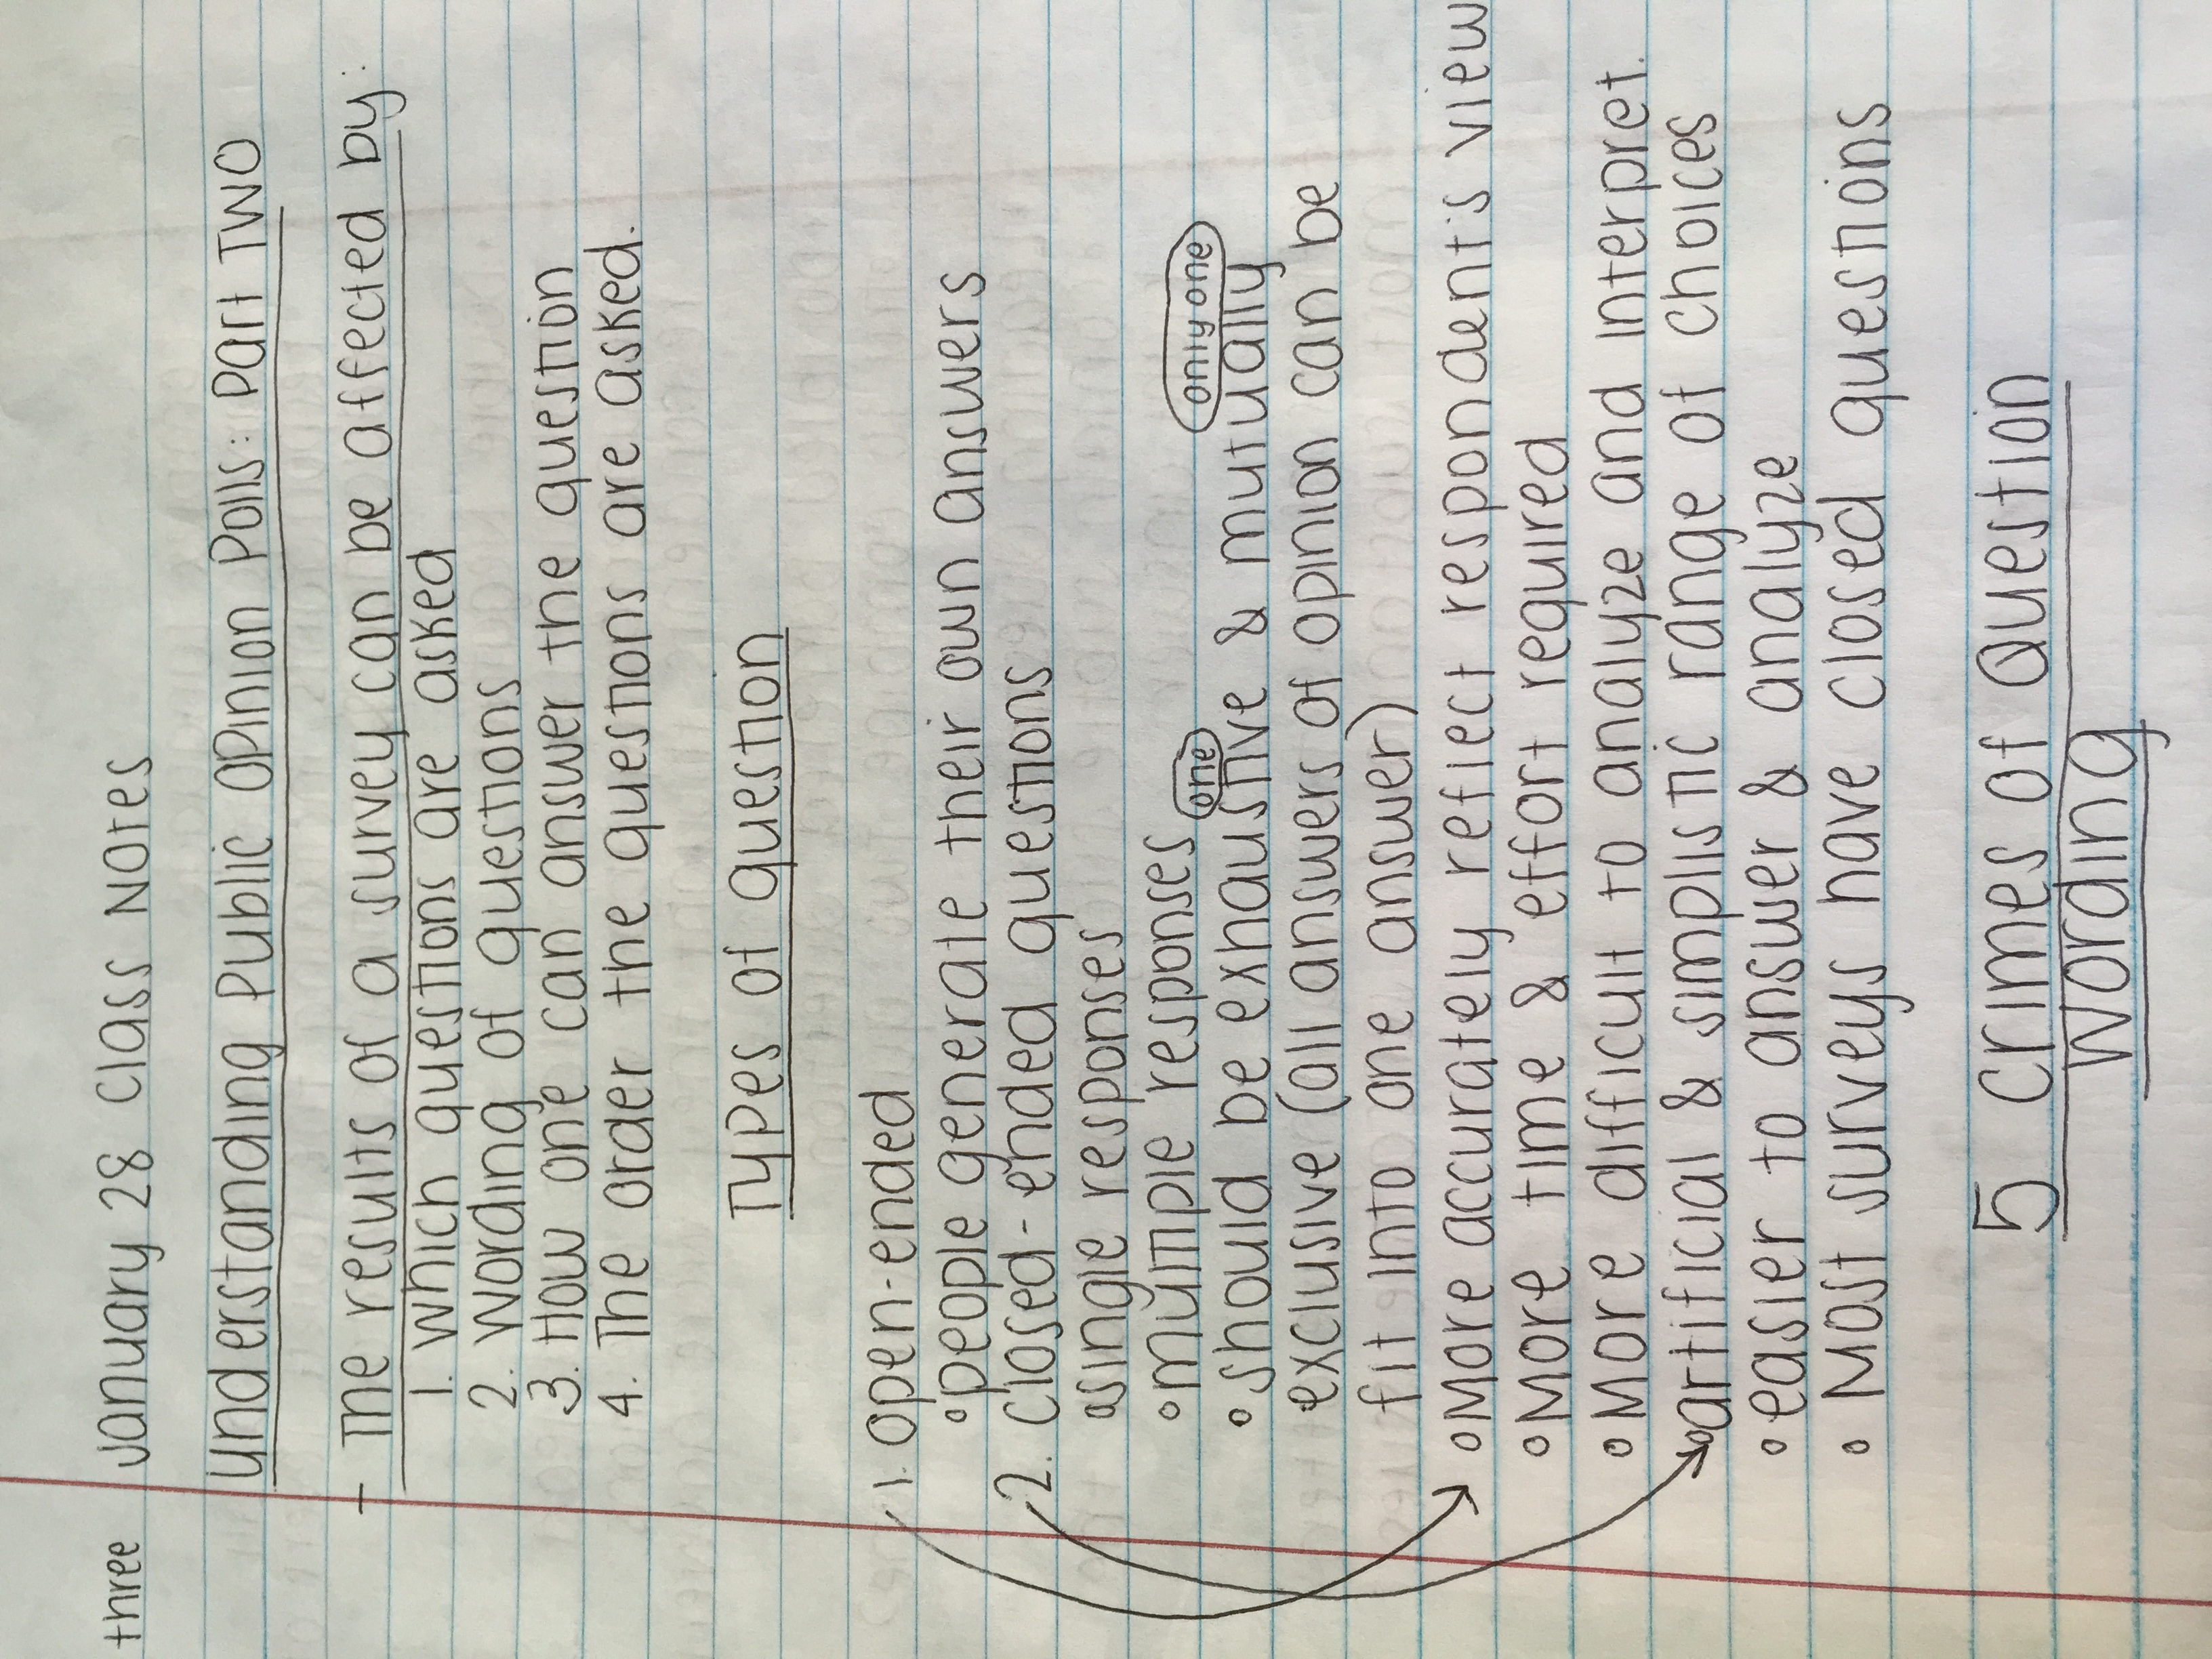 three January 28 Class Notes
Understanding Public Opinion Polls: Part Two
- The results of a survey can be affected by:
1. Which questions are asked
2. Wording of questions
3. How one can answer the question
4. The order the questions are asked.
Types of question
1. open-ended
• people generate their own answers
2. closed-ended questions
• single responses
• multiple responses
one only one
• should be exhaustive & mutually
exclusive (all answers of opinion can be
fit into one answer)
• More accurately reflect respondent's view
• More time & effort required
• More difficult to analyze and interpret.
• artificial & simplistic range of choices
• easier to answer & analyze
• Most surveys have closed questions
5 crimes of Question
Wording